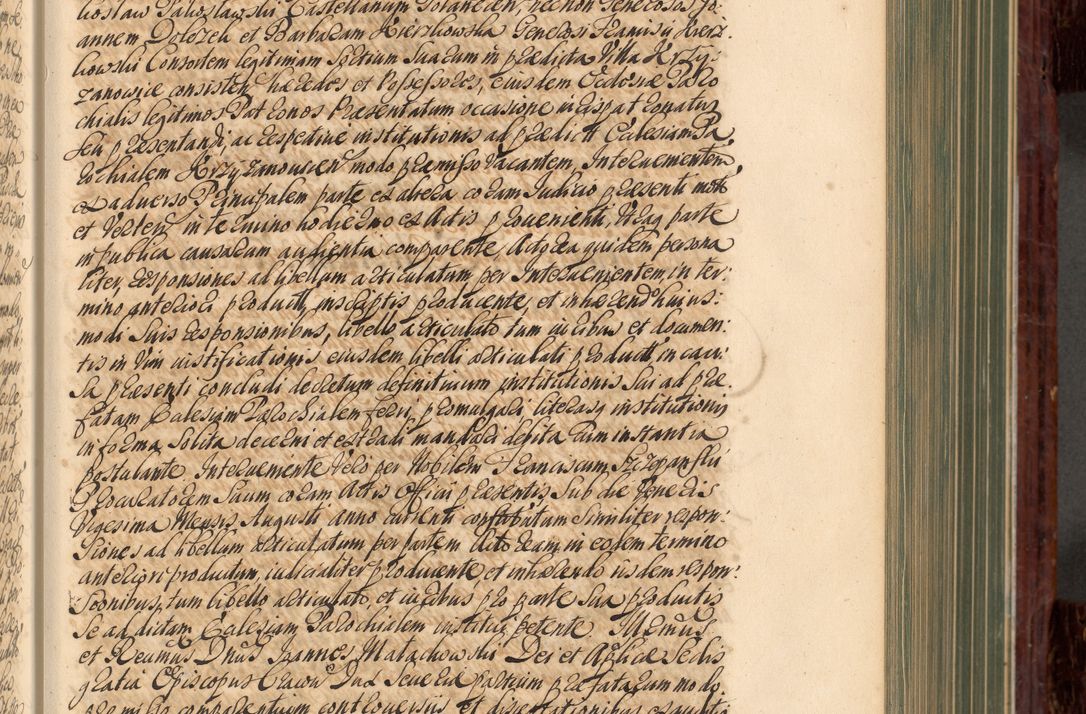 annem Dolozek et Barbaram Kierzkowska Generosi Francisci Kierz:
kowski Consortem legitimam Spetium Suarum in prædicta Villa Krzy:
zanowice consisten hæredes et Possessores, eiusdem Ecclesiæ Paro
chialis legitimos Patronos Præsentatum occasione iurispatronatus
seu præsentandi, ac respective institutionis ad prædictt Ecclesiam Pa
rochialem Krzyzanovicen modo præmisso Vacantem, Intervenientem
ex adverso Principalem parte ex altera coram Judicio præsenti mott
et Verten in termino hodierno ex Actis provenienti, Utraq parte
in publica causarum audientia comparente, Actorea quidem persona
liter, responsiones ad libellum articulatum per Intervenientem in ter:
mino anteriori productt, in scriptis producente, et inhærend huius:
modi Suis responsionibus, libello articulato tum iuribus et documen:
tis in Vim iustificationis eiusdem libelli articulati productt in cau:
sa præsenti concludi decretum definitivum institutionis Sui ad præ:
fatam Ecclesiam Parochialem ferri, promulgari, literasq institutionis
in forma Solita decerni et extradi mandari debita cum instantia
postulante. Interveniente Vero per Nobilem Franciscum Szczepanski
Procuratorem Suum coram Actis Officii præsentis Sub die Veneris
Vigesima Mensis Augusti anno currenti constitutum Similiter respon:
siones ad libellum articulatum per partem Actoream in eodem termino
anteriori productum, iudicialiter producente et inhærendo iisdem respon:
sionibus, tum libello articulato, et iuribus pro parte Sua productis
Se ad dictam Ecclesiam Parochialem institui petente. Illmus
et Rmus Dnus Joannes Małachowski Dei et Aplicæ Sedis
gratia Episcopus Cracovi Dux Severiæ partium præfatarum modo
præmisso comparentium controversiis et disertationibus exauditis